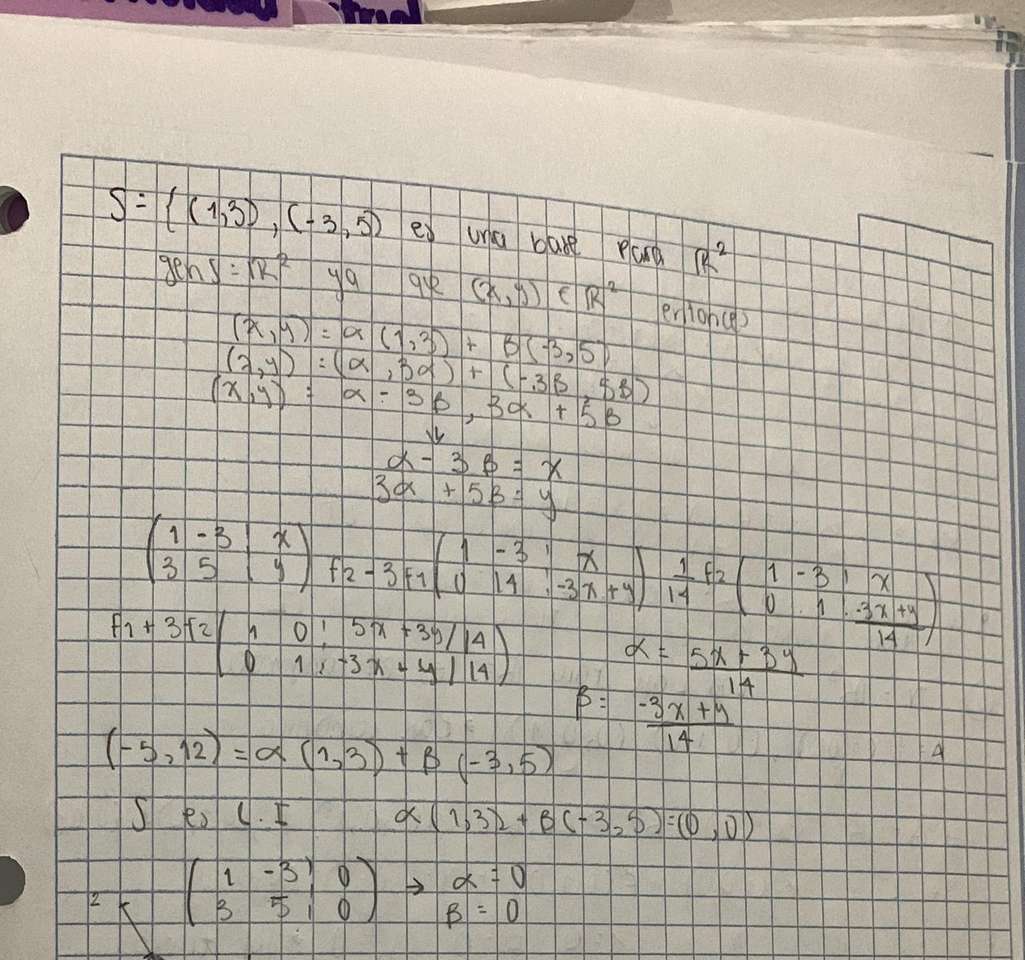 S = { (1,3) , (-3,5) es una base para ℝ²
gen S = ℝ² ya que (x,y) ∈ ℝ² entonces
(x,y) = α (1,3) + β(-3,5)
(x,y) = (α , 3α) + (-3β , 5β)
(x,y) = α - 3β , 3α + 5β
↓
α - 3β = x
3α + 5β = y
(1 -3 | x) (1 -3 | x) (1 -3 | x)
(3 5 | y) f2 - 3f1 (0 14 | -3x+y) 1/14 f2 (0 1 | -3x+y/14)
f1 + 3f2 (1 0 | 5x + 3y/14) α = 5x + 3y/14
(0 1 | -3x + y/14) β = -3x + y/14
(-5,12) = α (1,3) + β (-3,5) 4
S es L.I α(1,3) + β(-3,5) = (0,0)
(1 -3 | 0) → α = 0
2 (3 5 | 0) β = 0